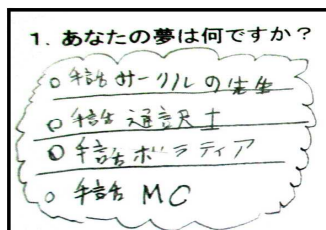 1. あなたの夢は何ですか?
○ 手話サークルの先生
○ 手話通訳士
○ 手話ボラティア
○ 手話 MC